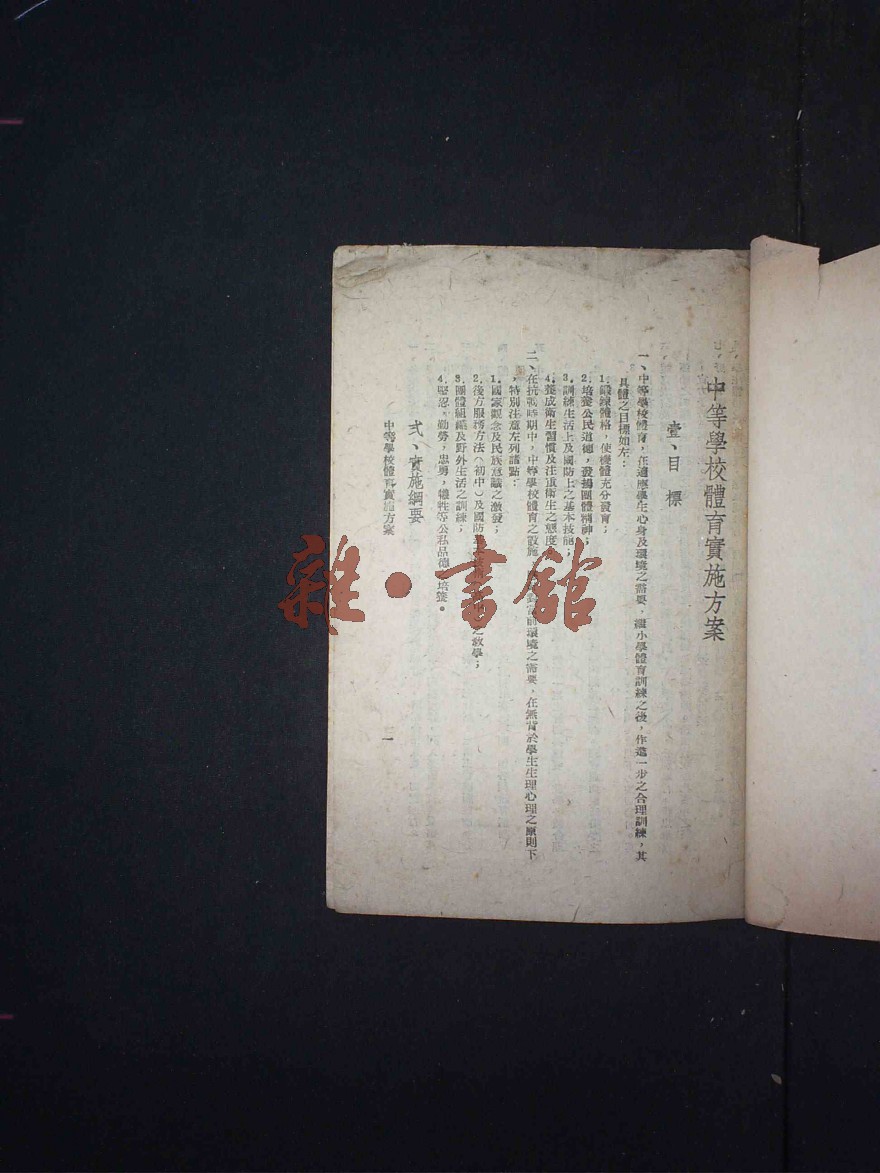 中等學校體育實施方案
壹、目標
一、中等學校體育，在適應學生心身及環境之需要，繼小學體育訓練之後，作進一步之合理訓練，其
具體之目標如左：
1.鍛鍊體格，使機體充分發育；
2.培養公民道德，發揚團體精神；
3.訓練生活上及國防上之基本技能；
4.養成衛生習慣及注重衛生之態度。
二、在抗戰時期中，中等學校體育之設施，前環境之需要，在無背於學生生理心理之原則下
，特別注意左列諸點：
1.國家觀念及民族意識之激發；
2.後方服務方法（初中）及國防之教學；
3.團體組織及野外生活之訓練；
4.堅忍，勤勞，忠勇，犧牲等公私品德之培養。
弍、實施綱要
中等學校體育實施方案
一
雜·書館